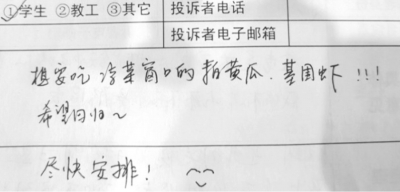 ①学生 ②教工 ③其它 投诉者电话
投诉者电子邮箱
想要吃 冷菜窗口的拍黄瓜、基围虾!!!
希望回归~
尽快安排!